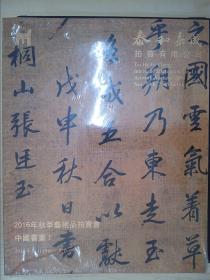 泰和嘉成
拍賣有限公司
之國雲氣著草
乃東走玉
咸五合以獻
戊申秋日書
桐山張廷玉
2016年秋季藝術品拍賣會
中國書畫